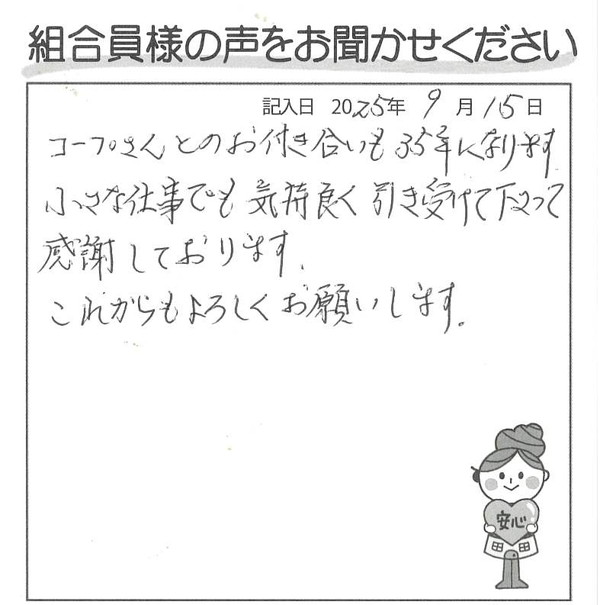 組合員様の声をお聞かせください
記入日 2025年 9月 15日
コープさんとのお付き合いも35年になります
小さな仕事でも気持良く引き受けて下さって
感謝しております。
これからもよろしくお願いします。
安心